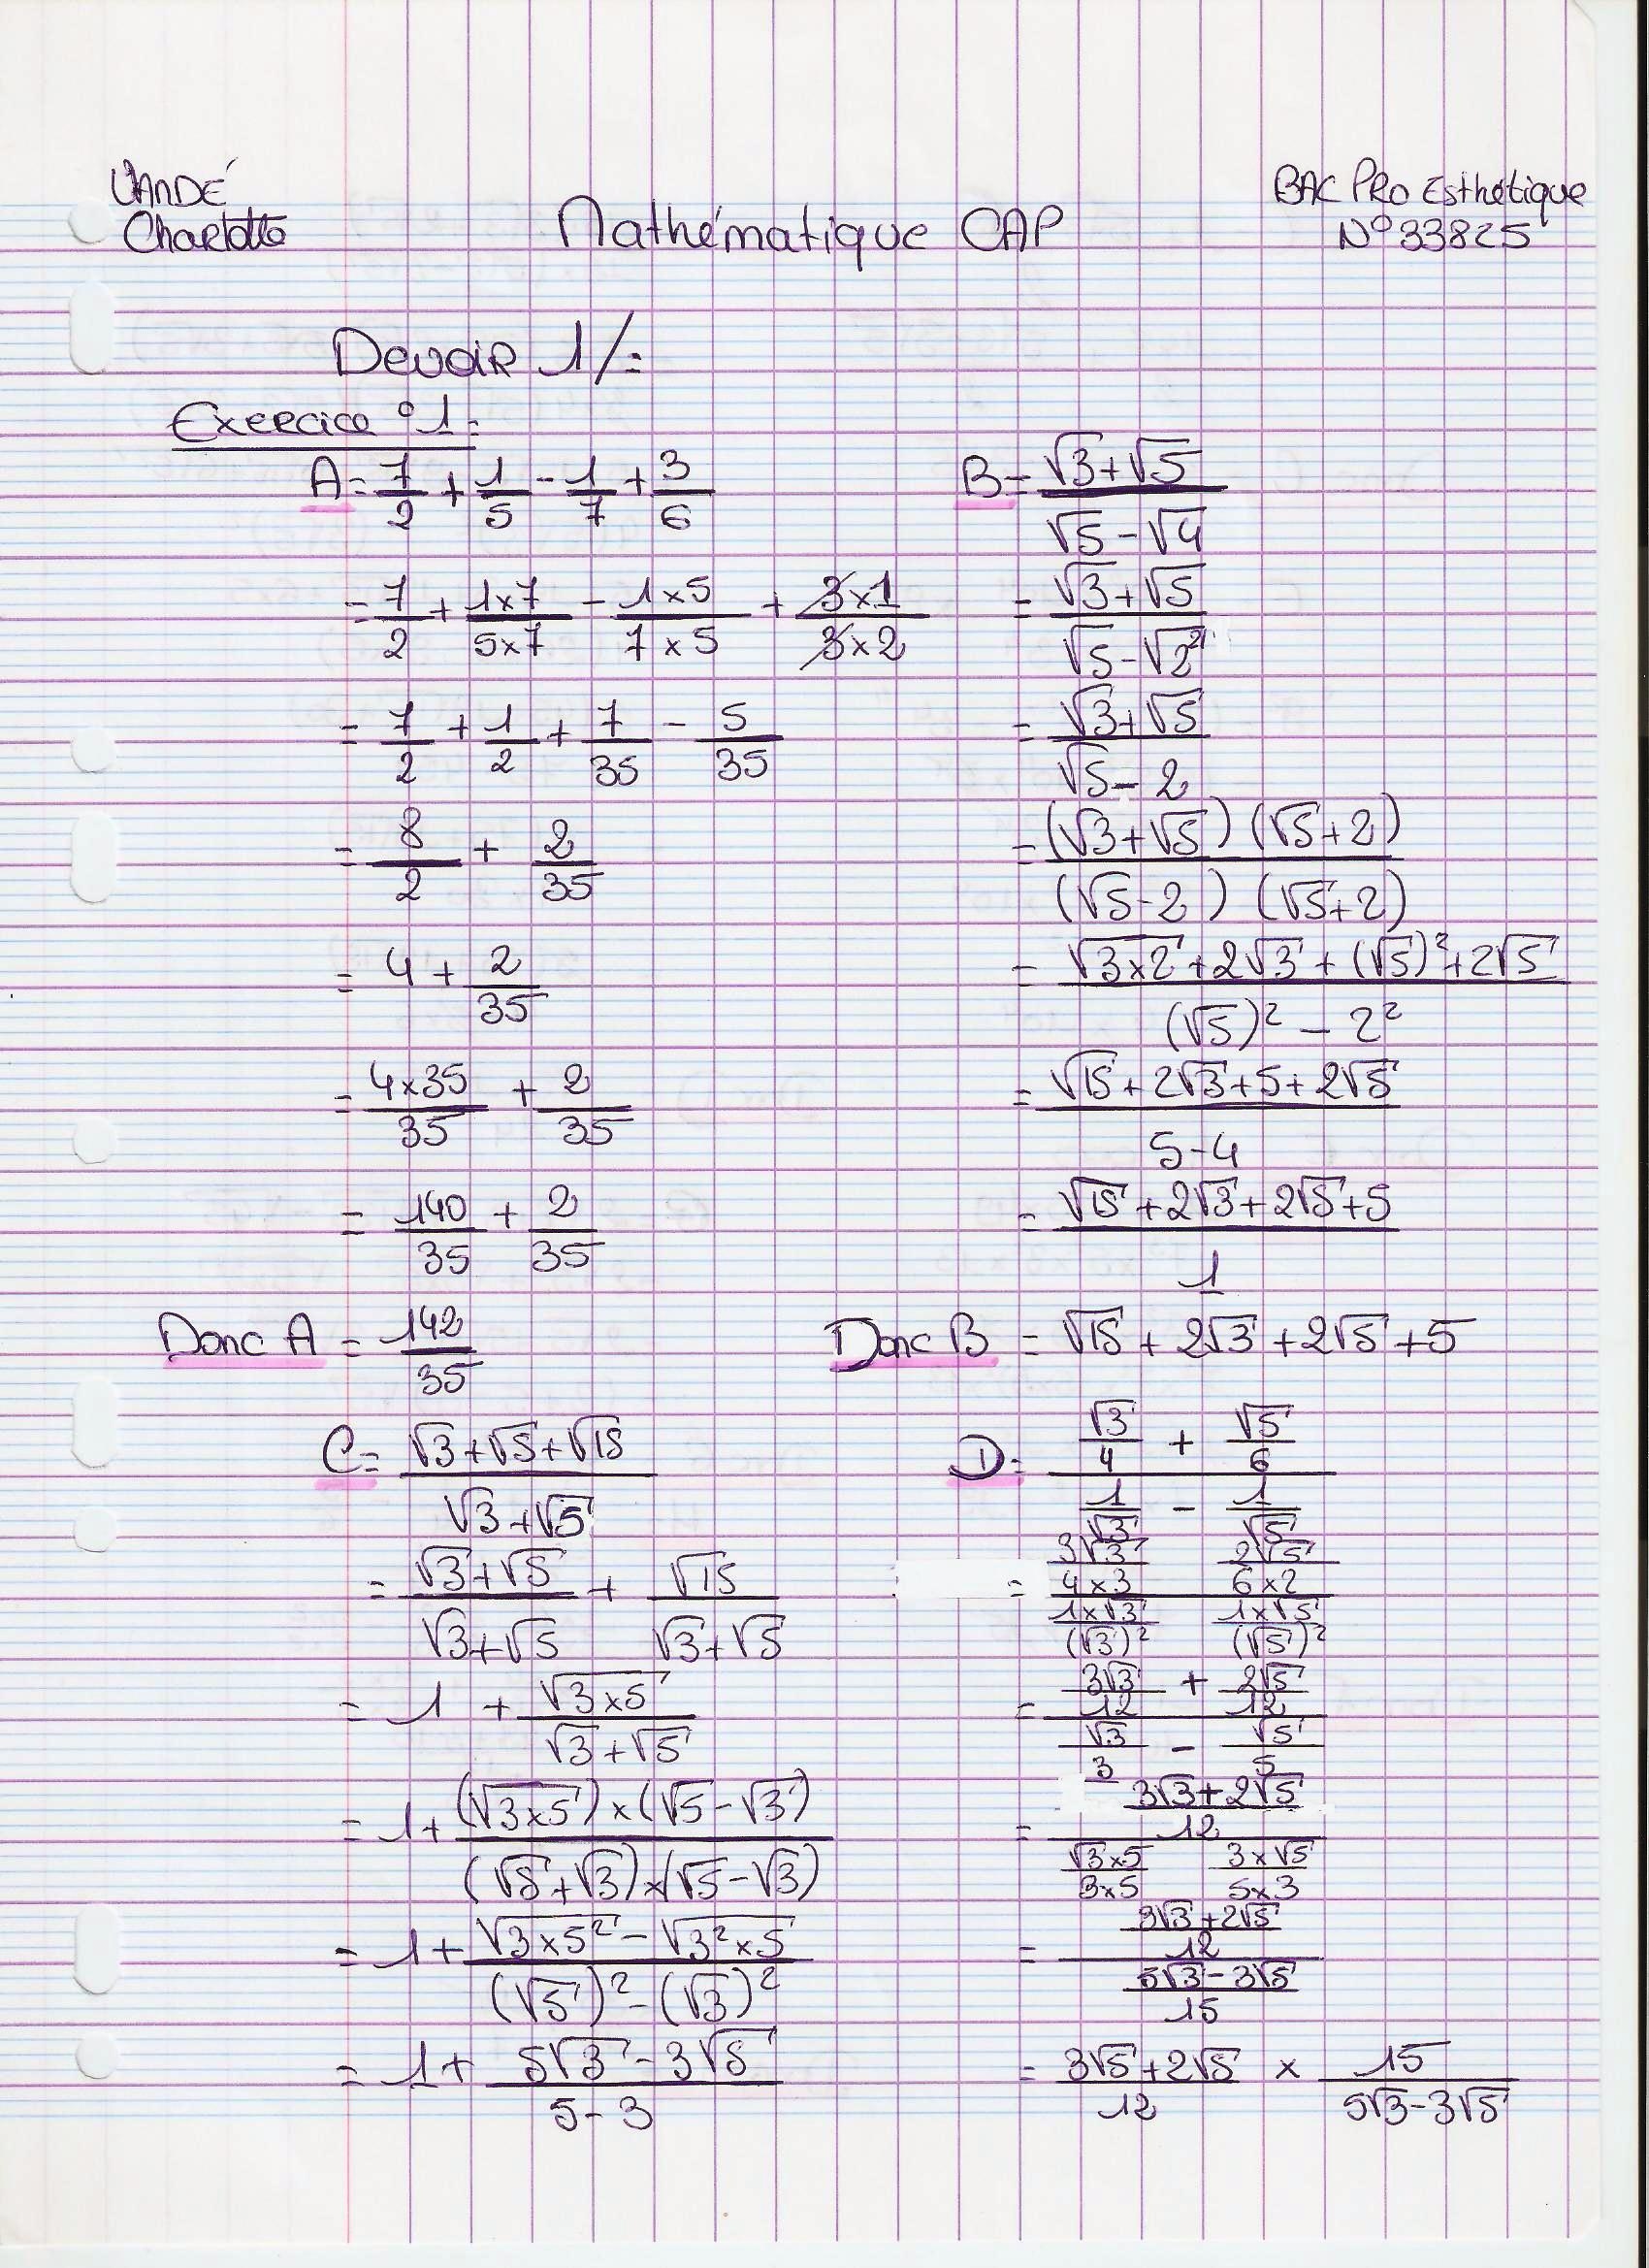 VANDÉ
Charlotte
Mathématique CAP
BAC PRO Esthétique
N° 33825
Devoir 1/=
Exercice °1=
A = 7/2 + 1/5 - 1/7 + 3/6
= 7/2 + 1x7/5x7 - 1x5/7x5 + 3x1/3x2
= 7/2 + 1/2 + 7/35 - 5/35
= 8/2 + 2/35
= 4 + 2/35
= 4x35/35 + 2/35
= 140/35 + 2/35
Donc A = 142/35
B = (√3+√5)/(√5-√4)
= (√3+√5)/(√5-√2²)
= (√3+√5)/(√5-2)
= (√3+√5)(√5+2)/(√5-2)(√5+2)
= (√3x2+2√3+(√5)²+2√5)/((√5)²-2²)
= (√15+2√3+5+2√5)/(5-4)
= (√15+2√3+2√5+5)/1
Donc B = √15+2√3+2√5+5
C = (√3+√5+√15)/(√3+√5)
= (√3+√5)/(√3+√5) + √15/(√3+√5)
= 1 + √3x5/(√3+√5)
= 1+ (√3x5)x(√5-√3)/(√5+√3)x(√5-√3)
= 1+ (√3x5²-√3²x5)/((√5)²-(√3)²)
= 1+ (5√3-3√5)/(5-3)
D = (√3/4 + √5/6)/(1/√3 - 1/√5)
= (3√3/4x3 2√5/6x2)/(1x√3/(√3)² 1x√5/(√5)²)
= (3√3/12 + 2√5/12)/(√3/3 - √5/5)
= ((3√3+2√5)/12)/(√3x5/3x5 3x√5/5x3)
= ((3√3+2√5)/12)/((5√3-3√5)/15)
= (3√5+2√5)/12 x 15/(5√3-3√5)